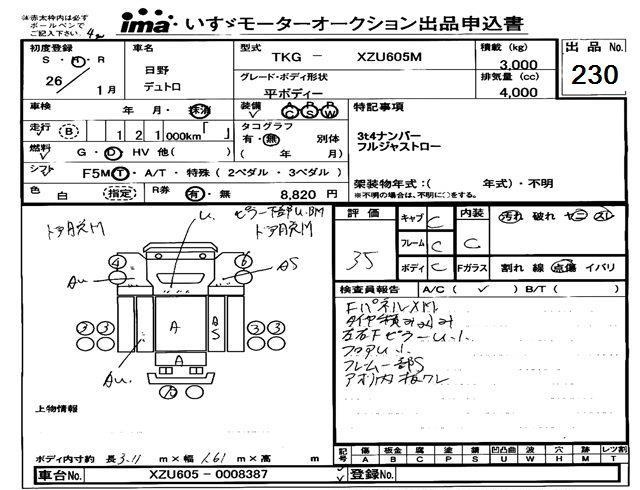 ※赤太枠内は必ず
ボールペンで
ご記入下さい。
ima いすゞモーターオークション出品申込書
初度登録 S・H・R
26年 1月
車名 日野 デュトロ
型式 TKG - XZU605M
グレード・ボディ形状
平ボディー
積載 (kg) 3,000
排気量 (cc) 4,000
出品 No.
230
車検 年 月・抹消
装備 AC PS PW
特記事項
3t4ナンバー
フルジャストロー
走行 B 121,000km「 」
タコグラフ 有・無 別体
( 年 月)
燃料 G・D HV 他( )
シフト F5MT・A/T・特殊(2ペダル・3ペダル)
架装物年式:( 年式)・不明
※不明の場合は、不明に○をする。
色 白 指定 R券 有・無 8,820 円
評価 35
キャブ C
フレーム C
ボディ C
内装 C 汚れ 破れ ヤニ スレ
Fガラス 割れ 線 点傷 イバリ
検査員報告 A/C( ✓ ) B/T( )
FパネルXM
左右FピラーU.I.
フロアU.I.
フレーム一部S
アオリ内板ワレ
U.
ドア内戻M
ドア内戻M
4
6
Au
AS
3 3
A
A
S
B
3 3
A
Au.
上物情報
ボディ内寸約 長3.11 m×幅1.61 m×高 m
記号 傷 板金 腐 塗 錆 凹凸曲 波 穴 跡 レツ割
A B C P S U W H M T
車台No. XZU605-0008387
登録No.